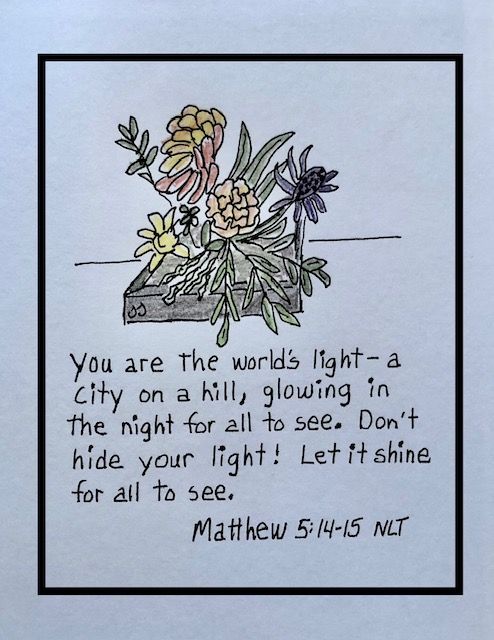 JJ
You are the world's light – a
City on a hill, glowing in
the night for all to see. Don't
hide your light! Let it shine
for all to see.
Matthew 5:14-15 NLT